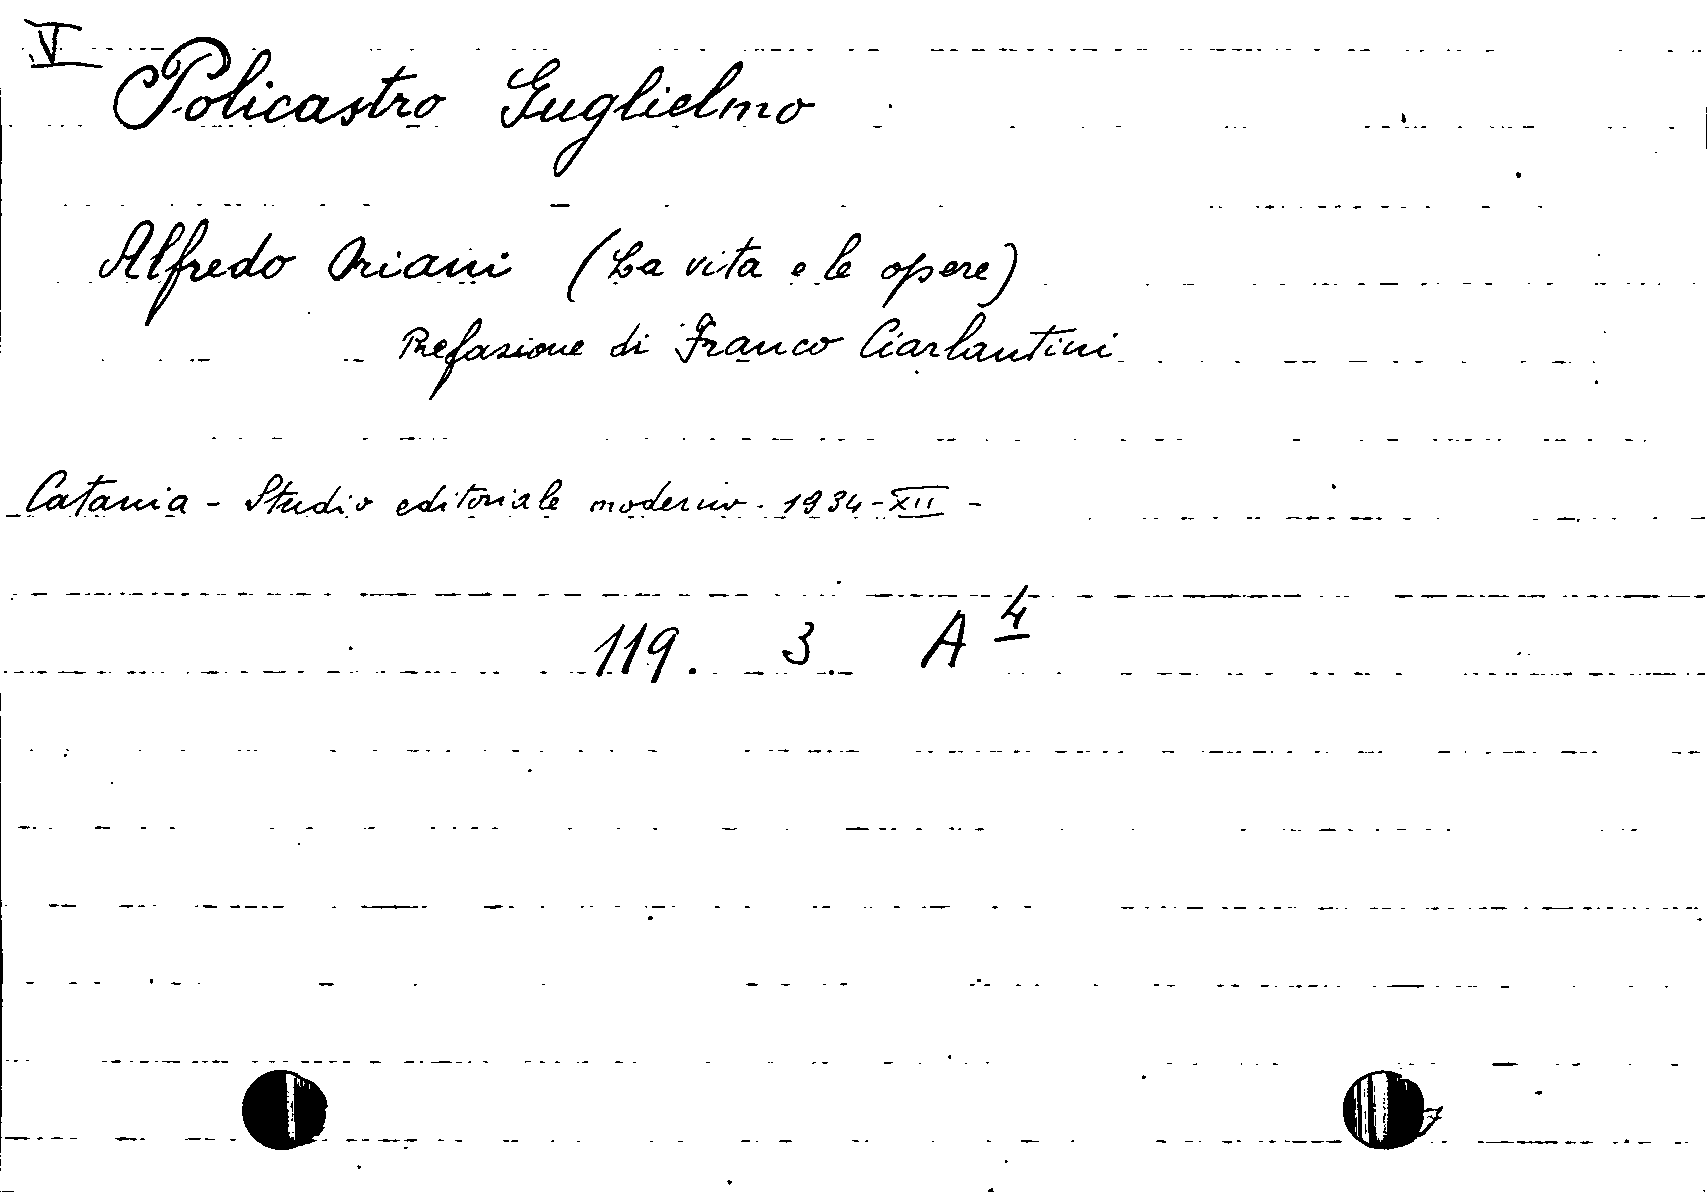 V
Policastro Guglielmo
Alfredo Oriani (La vita e le opere)
Prefazione di Franco Ciarlantini
Catania - Studio editoriale moderno. 1934-XII -
119. 3. A 4